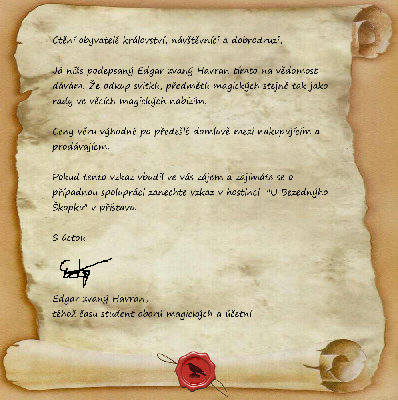 Ctění obyvatelé království, návštěvníci a dobrodruzi.
Já níže podepsaný Edgar zvaný Havran tímto na vědomost
dávám. Že odkup svitků, předmětů magických stejně tak jako
rady ve věcích magických nabízím.
Ceny věru výhodné po předešlé domluvě mezi nakupujícím a
prodávajícím.
Pokud tento vzkaz vbudil ve vás zájem a zajímáte se o
případnou spolupráci zanechte vzkaz v hostinci "U Bezedného
Škopku" v přístavu.
S úctou
Edgar zvaný Havran,
téhož času student oborů magických a účetní